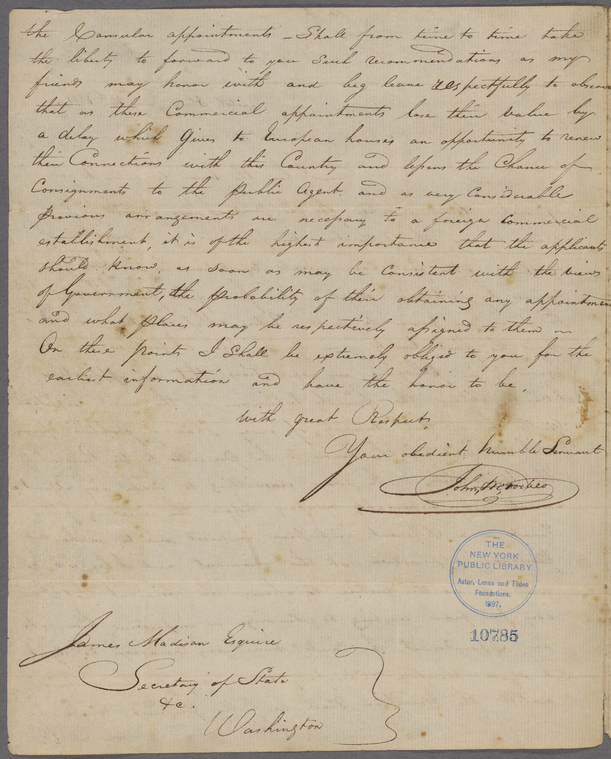 the Consular appointments – Shall from time to time take
the liberty to forward to you Such recommendations as my
friends may honor with and beg leave respectfully to observe
that as these Commercial appointments lose their value by
a delay which Gives to European houses an opportunity to renew
their Connections with this Country and lessens the Chance of
Consignments to the Public Agent, and as very Considerable
previous arrangements are necessary to a foreign Commercial
establishment, it is of the highest importance that the applicants
should know, as soon as may be Consistent with the views
of Government, the probability of their obtaining any appointment
and what places may be respectively assigned to them –
On these points I Shall be extremely obliged to you for the
earliest information and have the honor to be,
with great Respect,
Your obedient humble Servant
John
James Madison Esquire
Secretary of State
&c.
Washington
THE
NEW YORK
PUBLIC LIBRARY
Astor, Lenox and Tilden
Foundations.
1897.
10785